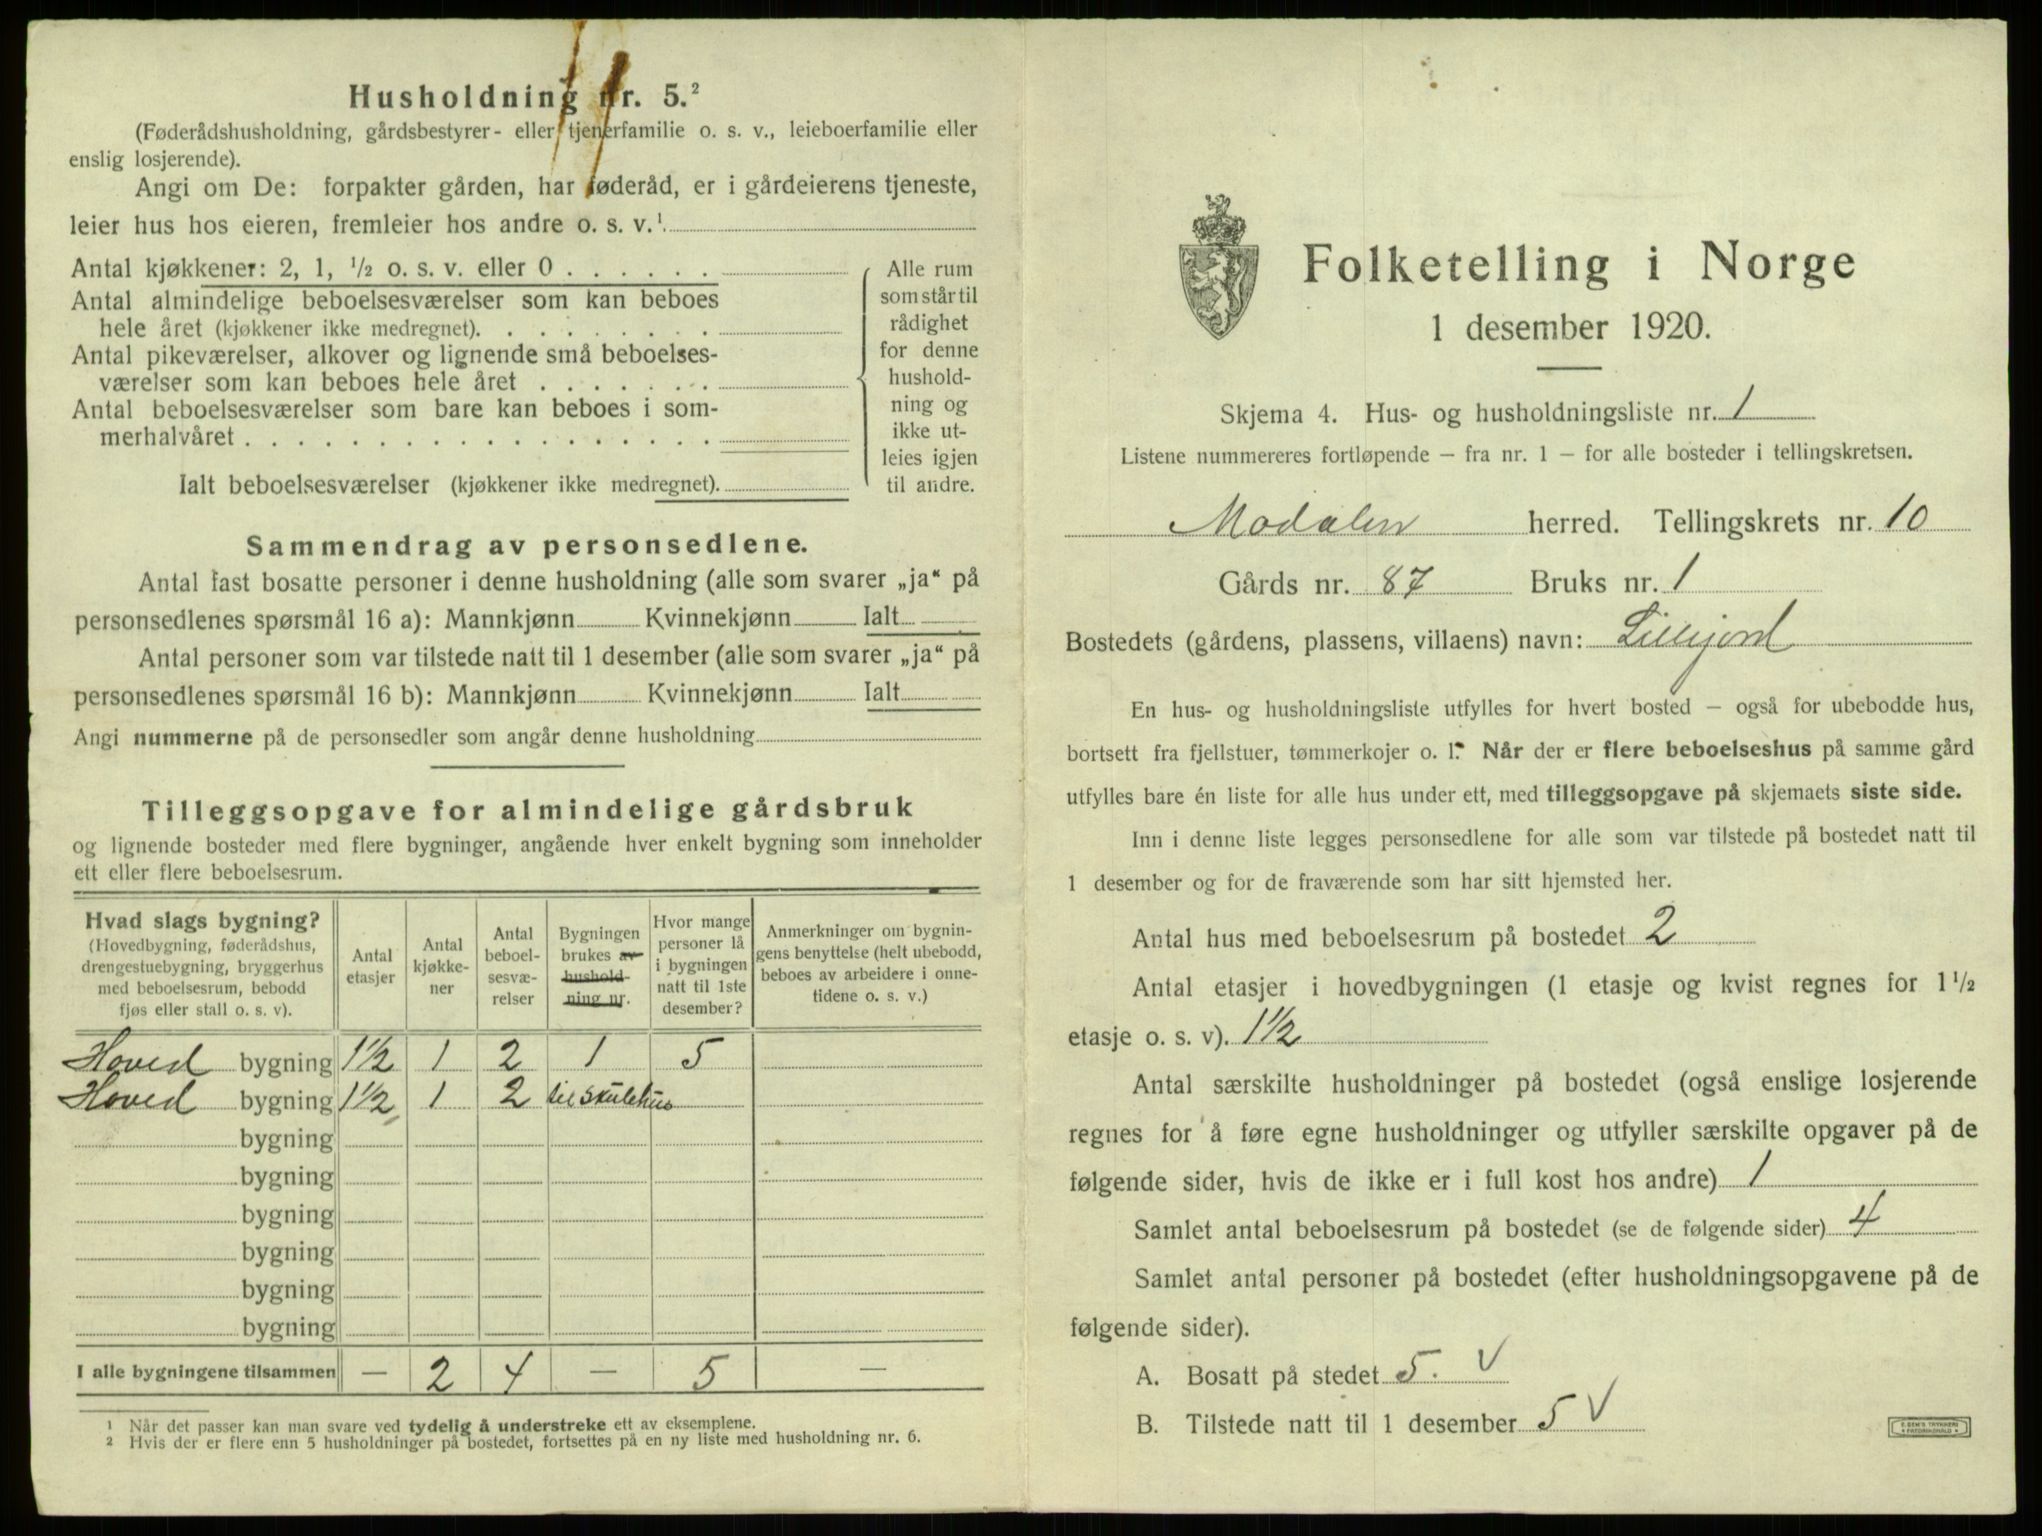 Husholdning nr. 5.²
(Føderådshusholdning, gårdsbestyrer- eller tjenerfamilie o. s. v., leieboerfamilie eller
enslig losjerende).
Angi om De: forpakter gården, har føderåd, er i gårdeierens tjeneste,
leier hus hos eieren, fremleier hos andre o. s. v.¹
Antal kjøkkener: 2, 1, ½ o. s. v. eller 0
Antal almindelige beboelsesværelser som kan beboes
hele året (kjøkkener ikke medregnet).
Antal pikeværelser, alkover og lignende små beboelses-
værelser som kan beboes hele året
Antal beboelsesværelser som bare kan beboes i som-
merhalvåret
Ialt beboelsesværelser (kjøkkener ikke medregnet).
Alle rum
som står til
rådighet
for denne
hushold-
ning og
ikke ut-
leies igjen
til andre.
Sammendrag av personsedlene.
Antal fast bosatte personer i denne husholdning (alle som svarer „ja“ på
personsedlenes spørsmål 16 a): Mannkjønn Kvinnekjønn Ialt
Antal personer som var tilstede natt til 1 desember (alle som svarer „ja“ på
personsedlenes spørsmål 16 b): Mannkjønn Kvinnekjønn Ialt
Angi nummerne på de personsedler som angår denne husholdning
Tilleggsopgave for almindelige gårdsbruk
og lignende bosteder med flere bygninger, angående hver enkelt bygning som inneholder
ett eller flere beboelsesrum.
Hvad slags bygning?
(Hovedbygning, føderådshus,
drengestuebygning, bryggerhus
med beboelsesrum, bebodd
fjøs eller stall o. s. v).
Antal
etasjer
Antal
kjøkke-
ner
Antal
beboel-
sesvæ-
relser
Bygningen
brukes av
hushold-
ning nr.
Hvor mange
personer lå
i bygningen
natt til 1ste
desember?
Anmerkninger om bygnin-
gens benyttelse (helt ubebodd,
beboes av arbeidere i onne-
tidene o. s. v.)
Hoved bygning 1½ 1 2 1 5
Hoved bygning 1½ 1 2 til skulehus
bygning
bygning
bygning
bygning
bygning
bygning
I alle bygningene tilsammen — 2 4 — 5 —
¹ Når det passer kan man svare ved tydelig å understreke ett av eksemplene.
² Hvis der er flere enn 5 husholdninger på bostedet, fortsettes på en ny liste med husholdning nr. 6.
Folketelling i Norge
1 desember 1920.
Skjema 4. Hus- og husholdningsliste nr. 1
Listene nummereres fortløpende — fra nr. 1 — for alle bosteder i tellingskretsen.
Modalen herred. Tellingskrets nr. 10
Gårds nr. 87 Bruks nr. 1
Bostedets (gårdens, plassens, villaens) navn: Lillejord
En hus- og husholdningsliste utfylles for hvert bosted — også for ubebodde hus,
bortsett fra fjellstuer, tømmerkojer o. l. Når der er flere beboelseshus på samme gård
utfylles bare én liste for alle hus under ett, med tilleggsopgave på skjemaets siste side.
Inn i denne liste legges personsedlene for alle som var tilstede på bostedet natt til
1 desember og for de fraværende som har sitt hjemsted her.
Antal hus med beboelsesrum på bostedet 2
Antal etasjer i hovedbygningen (1 etasje og kvist regnes for 1½
etasje o. s. v). 1½
Antal særskilte husholdninger på bostedet (også enslige losjerende
regnes for å føre egne husholdninger og utfyller særskilte opgaver på de
følgende sider, hvis de ikke er i full kost hos andre) 1
Samlet antal beboelsesrum på bostedet (se de følgende sider) 4
Samlet antal personer på bostedet (efter husholdningsopgavene på de
følgende sider).
A. Bosatt på stedet 5. V
B. Tilstede natt til 1 desember 5 V